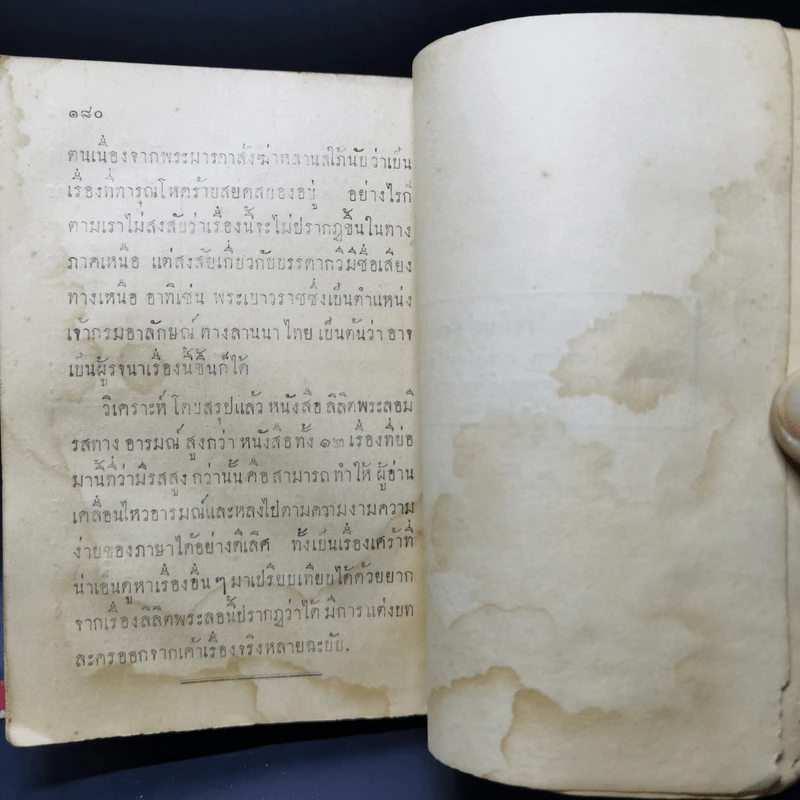 ๑๘๐
ตนเนื่องจากพระมารดาสั่งฆ่าหลานสใภ้นับว่าเป็น
เรื่องที่ทารุณโหดร้ายสยดสยองอยู่ อย่างไรก็
ตามเราไม่สงสัยว่าเรื่องนี้จะไม่ปรากฏขึ้นในทาง
ภาคเหนือ แต่สงสัยเกี่ยวกับบรรดากวีมีชื่อเสียง
ทางเหนือ อาทิเช่น พระเยาวราชซึ่งเป็นตำแหน่ง
เจ้ากรมอาลักษณ์ ทางลานนา ไทย เป็นต้นว่า อาจ
เป็นผู้รจนาเรื่องนี้ขึ้นก็ได้
วิเคราะห์ โดยสรุปแล้ว หนังสือ ลิลิตพระลอมี
รสทาง อารมณ์ สูงกว่า หนังสือทั้ง ๑๒ เรื่องที่ย่อ
มานี้ที่ว่ามีรสสูง กว่านั้น คือสามารถ ทำให้ ผู้อ่าน
เคลื่อนไหวอารมณ์และหลงไปตามความงามความ
ง่ายของภาษาได้อย่างดีเลิศ ทั้งเป็นเรื่องเศร้าที่
น่าเอ็นดูหาเรื่องอื่นๆ มาเปรียบเทียบได้ด้วยยาก
จากเรื่องลิลิตพระลอนี้ปรากฏว่าได้ มีการ แต่งบท
ละครออกจากเค้าเรื่องจริงหลายฉะบับ.